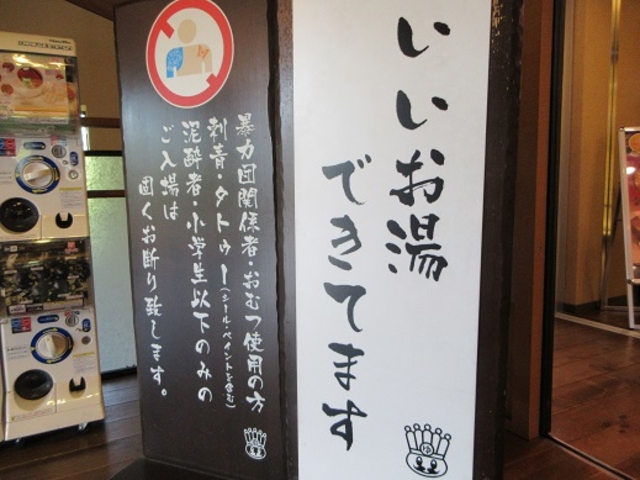 いいお湯
できてます
暴力団関係者・おむつ使用の方
刺青・タトゥー(シール・ペイントを含む)
泥酔者・小学生以下のみの
ご入場は
固くお断り致します。
ゆ